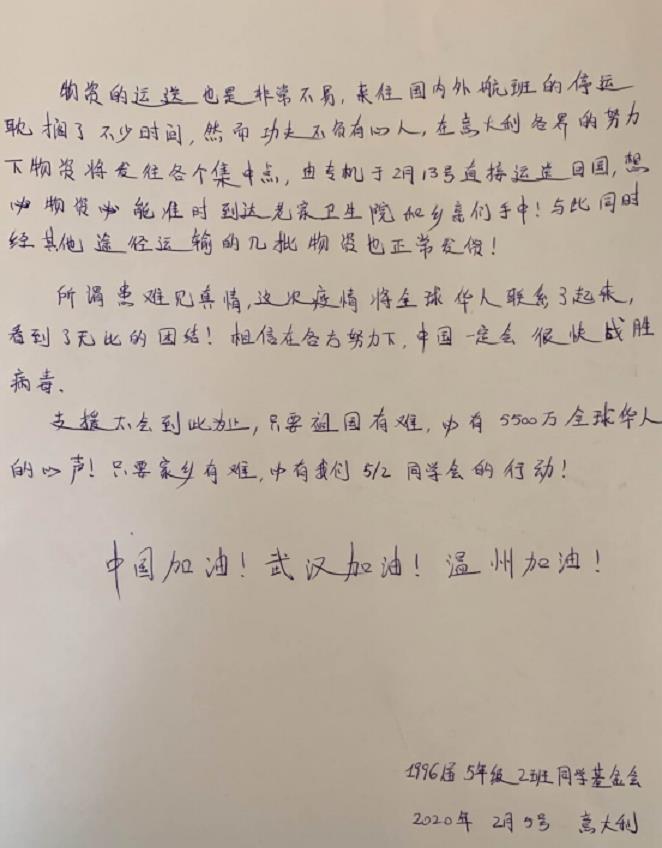 物资的运送也是非常不易，来往国内外航班的停运
耽搁了不少时间，然而功夫不负有心人，在意大利各界的努力
下物资将发往各个集中点，由专机于2月13号直接运送回国，想
必物资必能准时到达老家卫生院和乡亲们手中！与此同时
经其他途径运输的几批物资也正常发假！
所谓患难见真情，这次疫情将全球华人联系了起来，
看到了无比的团结！相信在各方努力下，中国一定会很快战胜
病毒．
支援不会到此为止，只要祖国有难，必有5500万全球华人
的心声！只要家乡有难，必有我们5/2同学会的行动！
中国加油！武汉加油！温州加油！
1996届5年级2班同学基金会
2020年 2月9号 意大利